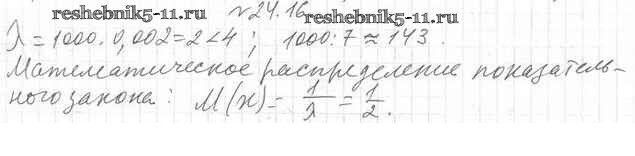 reshebnik5-11.ru
№24.16
reshebnik5-11.ru
λ = 1000 · 0,002 = 2 < 4 ; 1000 : 7 ≈ 143 .
Математическое распределение показатель-
ного закона: M(x) = 1/λ = 1/2 .